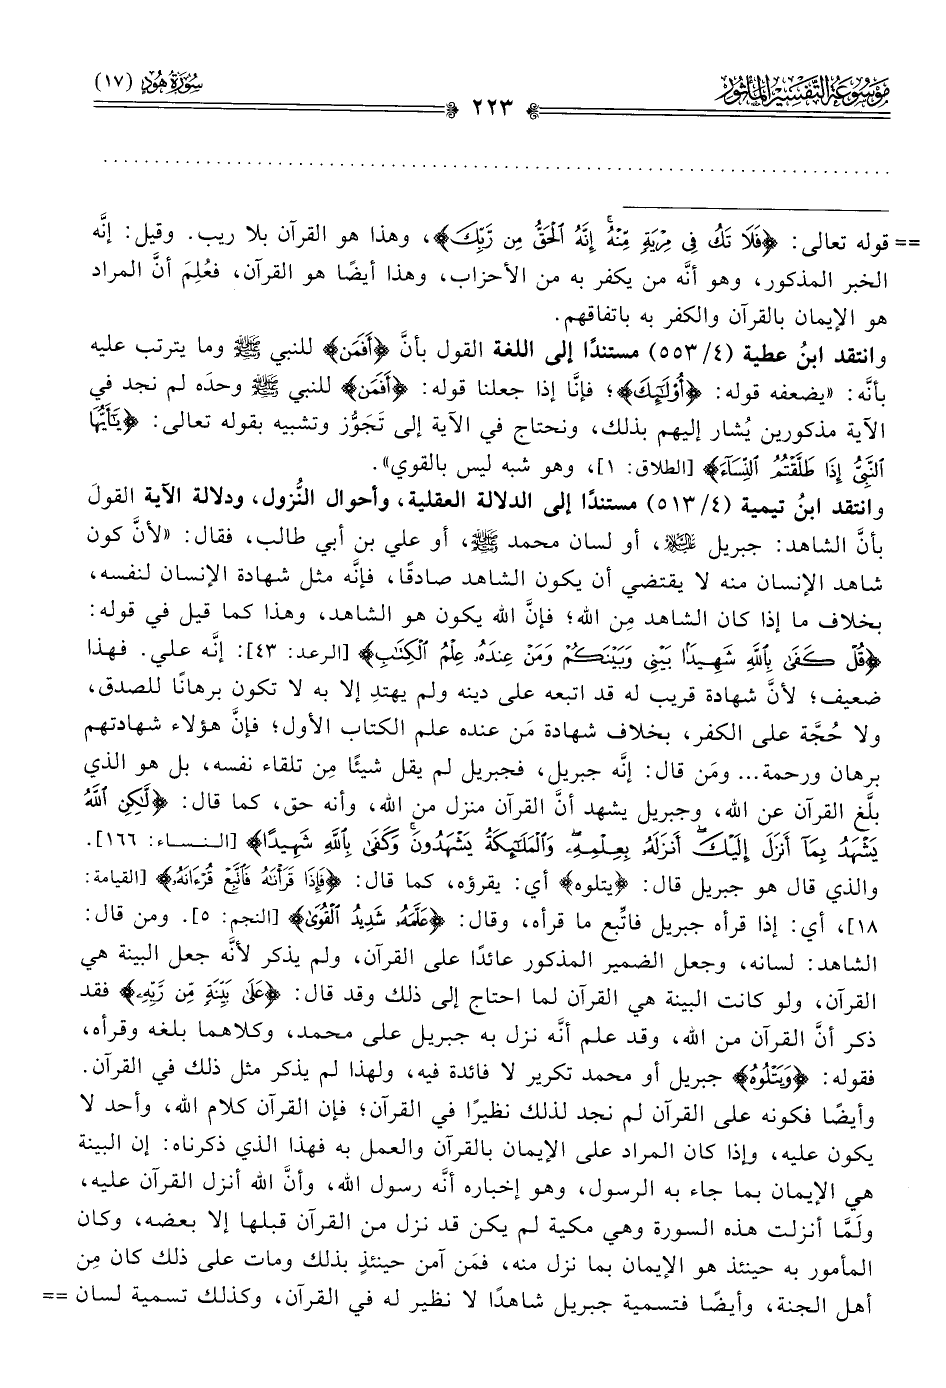 مَوْسُوعَة التَّفْسِير المَأْثُور
سُورَةُ هُودٍ (١٧)
٢٢٣
== قوله تعالى: ﴿فَلَا تَكُ فِي مِرْيَةٍ مِّنْهُ إِنَّهُ الْحَقُّ مِن رَّبِّكَ﴾، وهذا هو القرآن بلا ريب. وقيل: إنَّه
الخبر المذكور، وهو أنَّه من يكفر به من الأحزاب، وهذا أيضًا هو القرآن، فعُلِمَ أنَّ المراد
هو الإيمان بالقرآن والكفر به باتفاقهم.
وانتقد ابنُ عطية (٤/ ٥٥٣) مستندًا إلى اللغة القول بأنَّ ﴿أَفَمَن﴾ للنبي ﷺ وما يترتب عليه
بأنَّه: «يضعفه قوله: ﴿أُوْلَٰٓئِكَ﴾؛ فإنَّا إذا جعلنا قوله: ﴿أَفَمَن﴾ للنبي ﷺ وحدَه لم نجد في
الآية مذكورين يُشار إليهم بذلك، ونحتاج في الآية إلى تَجَوُّز وتشبيه بقوله تعالى: ﴿يَٰٓأَيُّهَا
النَّبِيُّ إِذَا طَلَّقْتُمُ النِّسَآءَ﴾ [الطلاق: ١]، وهو شبه ليس بالقوي».
وانتقد ابنُ تيمية (٤/ ٥١٣) مستندًا إلى الدلالة العقلية، وأحوال النُّزول، ودلالة الآية القولَ
بأنَّ الشاهد: جبريل عليه السلام، أو لسان محمد ﷺ، أو علي بن أبي طالب، فقال: «لأنَّ كون
شاهد الإنسان منه لا يقتضي أن يكون الشاهد صادقًا، فإنَّه مثل شهادة الإنسان لنفسه،
بخلاف ما إذا كان الشاهد مِن الله؛ فإنَّ الله يكون هو الشاهد، وهذا كما قيل في قوله:
﴿قُلْ كَفَىٰ بِاللَّهِ شَهِيدًا بَيْنِي وَبَيْنَكُمْ وَمَنْ عِندَهُۥ عِلْمُ الْكِتَٰبِ﴾ [الرعد: ٤٣]: إنَّه علي. فهذا
ضعيف؛ لأنَّ شهادة قريب له قد اتبعه على دينه ولم يهتدِ إلا به لا تكون برهانًا للصدق،
ولا حُجَّة على الكفر، بخلاف شهادة مَن عنده علم الكتاب الأول؛ فإنَّ هؤلاء شهادتهم
برهان ورحمة... ومَن قال: إنَّه جبريل، فجبريل لم يقل شيئًا مِن تلقاء نفسه، بل هو الذي
بلَّغ القرآن عن الله، وجبريل يشهد أنَّ القرآن منزل من الله، وأنه حق، كما قال: ﴿لَّٰكِنِ اللَّهُ
يَشْهَدُ بِمَآ أَنزَلَ إِلَيْكَ ۖ أَنزَلَهُۥ بِعِلْمِهِۦ ۖ وَالْمَلَٰٓئِكَةُ يَشْهَدُونَ ۚ وَكَفَىٰ بِاللَّهِ شَهِيدًا﴾ [النساء: ١٦٦].
والذي قال هو جبريل قال: ﴿يتلوه﴾ أي: يقرؤه، كما قال: ﴿فَإِذَا قَرَأْنَٰهُ فَاتَّبِعْ قُرْءَانَهُۥ﴾ [القيامة:
١٨]، أي: إذا قرأه جبريل فاتَّبِع ما قرأه، وقال: ﴿عَلَّمَهُۥ شَدِيدُ الْقُوَىٰ﴾ [النجم: ٥]. ومن قال:
الشاهد: لسانه، وجعل الضمير المذكور عائدًا على القرآن، ولم يذكر لأنَّه جعل البينة هي
القرآن، ولو كانت البينة هي القرآن لما احتاج إلى ذلك وقد قال: ﴿عَلَىٰ بَيِّنَةٍ مِّن رَّبِّهِۦ﴾ فقد
ذكر أنَّ القرآن من الله، وقد علم أنَّه نزل به جبريل على محمد، وكلاهما بلغه وقرأه،
فقوله: ﴿وَيَتْلُوهُ﴾ جبريل أو محمد تكرير لا فائدة فيه، ولهذا لم يذكر مثل ذلك في القرآن.
وأيضًا فكونه على القرآن لم نجد لذلك نظيرًا في القرآن؛ فإن القرآن كلام الله، وأحد لا
يكون عليه، وإذا كان المراد على الإيمان بالقرآن والعمل به فهذا الذي ذكرناه: إن البينة
هي الإيمان بما جاء به الرسول، وهو إخباره أنَّه رسول الله، وأنَّ الله أنزل القرآن عليه،
ولَمَّا أنزلت هذه السورة وهي مكية لم يكن قد نزل من القرآن قبلها إلا بعضه، وكان
المأمور به حينئذ هو الإيمان بما نزل منه، فمَن آمن حينئذٍ بذلك ومات على ذلك كان مِن
أهل الجنة، وأيضًا فتسمية جبريل شاهدًا لا نظير له في القرآن، وكذلك تسمية لسان ==